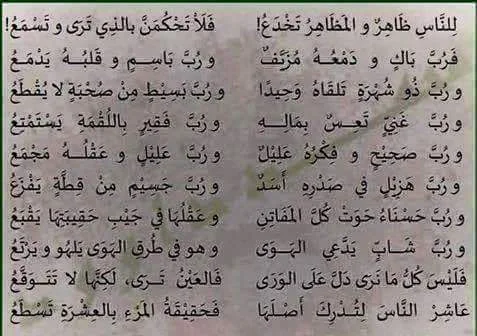 لِلنَّاسِ ظَاهِرٌ و المَظَاهِرُ تَخْدَعُ! فَلَاْ تَحْكُمَنَّ بالذِي تَرَى و تَسْمَعُ!
فَرُبَّ بَاكٍ و دَمْعُهُ مُزَيَّفٌ ورُبَّ بَاسِمٍ و قَلبُهُ يَدْمَعُ
ورُبَّ ذُو شُهْرَةٍ تَلقَاهُ وَحِيدًا ورُبَّ بَسِيْطٍ مِنْ صُحْبَةٍ لا يُقْطَعُ
ورُبَّ غَنِيٍّ تَعِسٌ بِمَالِهِ ورُبَّ فَقِيرٍ بِاللُقْمَةِ يَسْتَمْتِعُ
ورُبَّ صَحِيْحٍ و فِكْرُهُ عَلِيْلٌ ورُبَّ عَلِيْلٍ و عَقْلُهُ مَجْمَعُ
ورُبَّ هَزِيْلٍ في صَدْرِهِ أَسَدٌ ورُبَّ جَسِيْمٍ مِنْ قِطَّةٍ يَفْزَعُ
ورُبَّ حَسْنَاءُ حَوَتْ كُلَّ المَفَاتِنِ و عَقْلُهَا في جَيْبِ حَقِيبَتِهَا يَقْبَعُ
ورُبَّ شَابٍّ يَدَّعِي الهَوَى و هو في طُرقِ الهَوَى يَلهُو و يَرْتَعُ
فَلَيْسَ كُلُّ مَا نَرَى دَلَّ عَلَى الوَرَى فَالعَيْنُ تَرَى، لَكِنَّهَا لا تَتَوَقَّعُ
عَاشِرْ النَّاسَ لِتُدْرِكَ أَصْلَهَا فَحَقِيْقَةُ المَرْءِ بِالعِشْرَةِ تَسْطَعُ